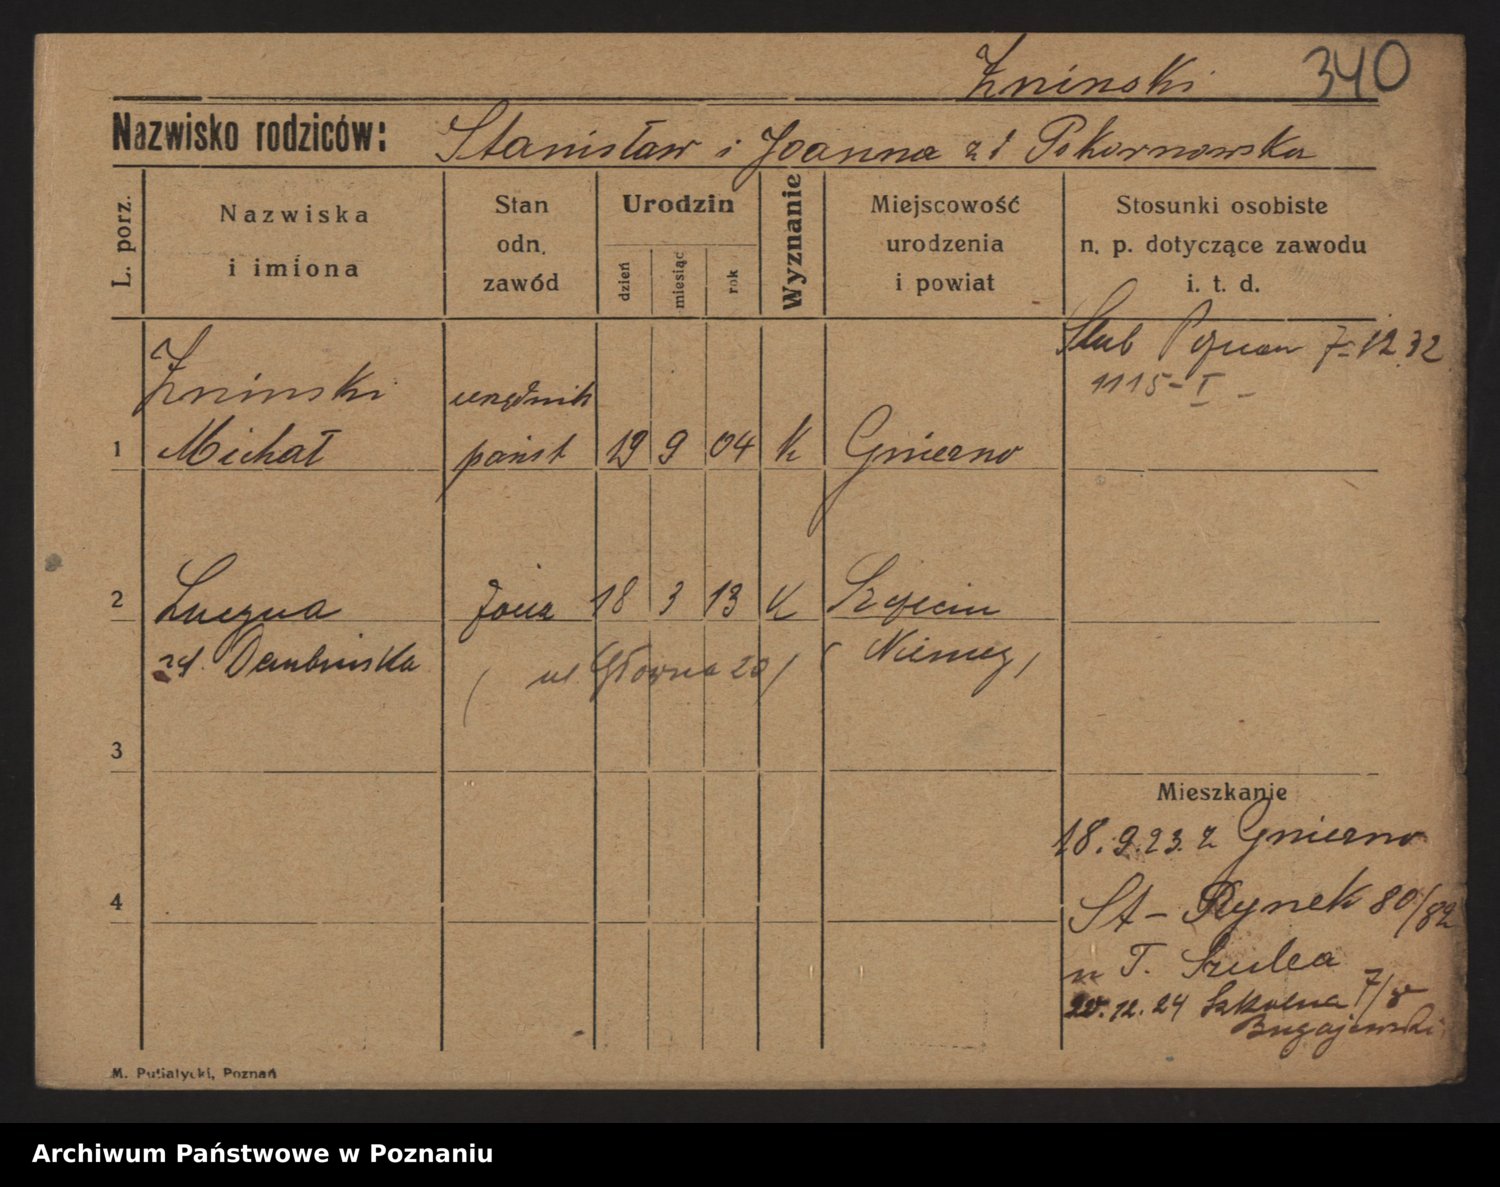 Żninski 340
Nazwisko rodziców: Stanisław i Joanna zd Pokornowska
L. porz.
Nazwiska
i imiona
Stan
odn.
zawód
Urodzin
dzień
miesiąc
rok
Wyznanie
Miejscowość
urodzenia
i powiat
Stosunki osobiste
n. p. dotyczące zawodu
i. t. d.
Ślub Poznan 7-12.32
1115-I
Żninski urzędnik
1 Michał państ 19 9 04 K Gniezno
2 Łucyna żona 18 3 13 K Szczecin
zd. Dembinska ( ul Głowna 20 ) ( Niemcy )
3
Mieszkanie
18.9.23. z Gniezno
4
St- Rynek 80/82
u T. Szulca
20.12.24 Szkolna 7/8
Bugajewski
M. Putiatycki, Poznań
Archiwum Państwowe w Poznaniu